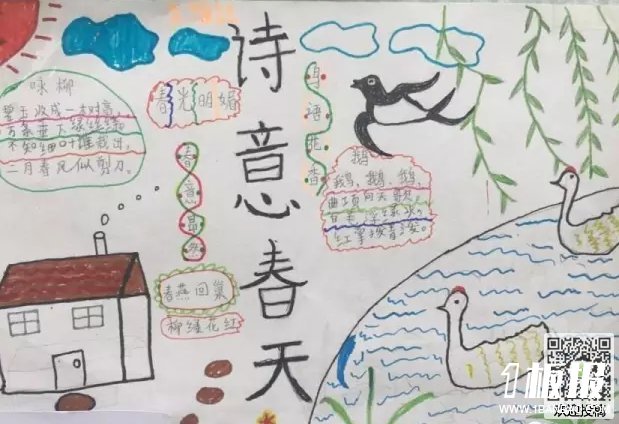 诗意春天
咏柳
碧玉妆成一树高
万条垂下绿丝绦
不知细叶谁裁出，
二月春风似剪刀。
春光明媚
春意盎然
春燕回巢
柳绿花红
鸟语花香
鹅
鹅，鹅，鹅，
曲项向天歌，
白毛浮绿水，
红掌拨清波。
1板报
WWW.1BANBAO.COM
欢迎投稿